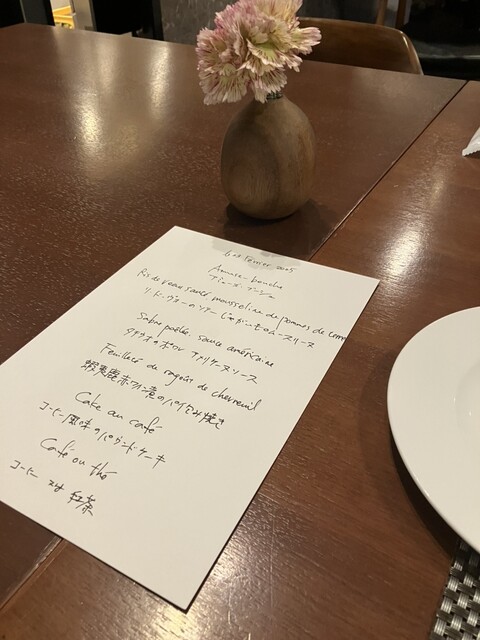 Février 2025
Amuse-bouche
アミューズ・ブーシュ
Ris de veau sauté mousseline de pommes de terre
リ・ド・ヴォーのソテー じゃがいものムースリーヌ
Sabre poêlée, sauce américaine
タチウオ ポワレ アメリケーヌソース
Feuilleté de ragoût de chevreuil
蝦夷鹿赤ワイン煮のパイ包み焼き
Cake au café
コーヒー風味のパウンドケーキ
Café ou thé
コーヒー 又は 紅茶